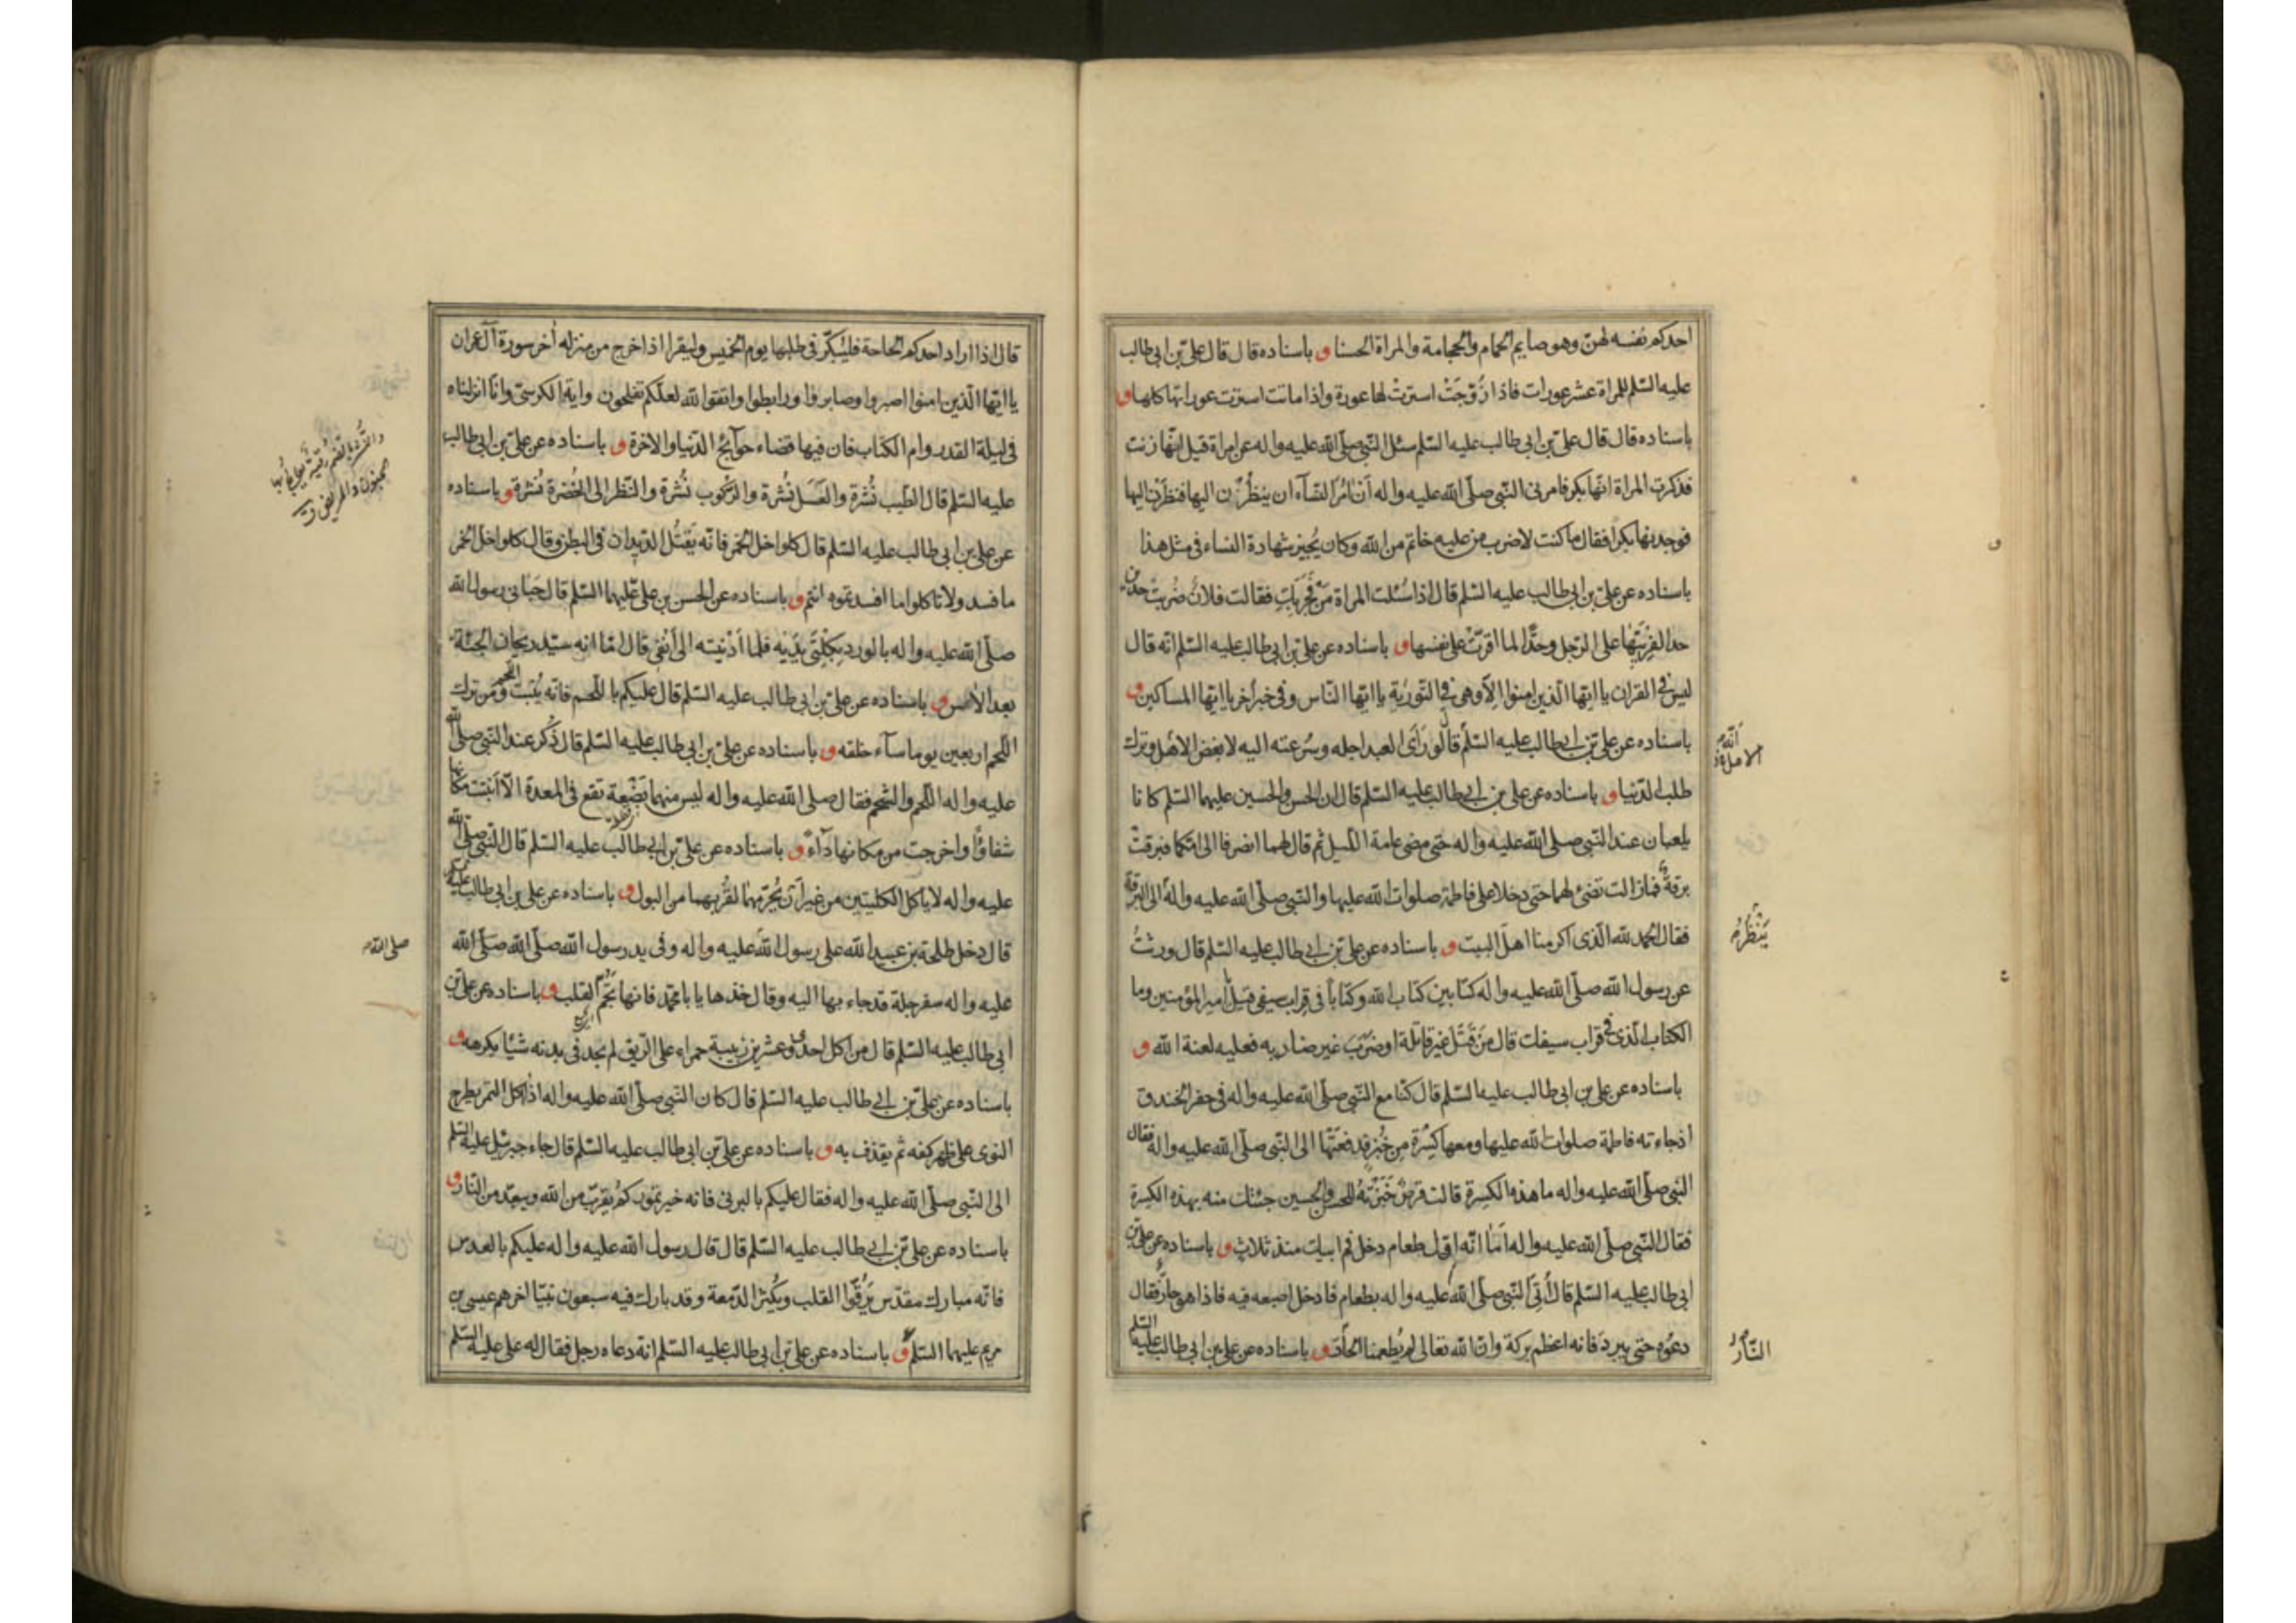 احدكم نفسه لهنّ وهو صايم الحمام والحجامة والمراة الحسنا و باسناده قال قال على بن ابى طالب
عليه السّلم للمراة عشر عورات فاذا زُوّجَتْ استرتْ لها عورة واذا ماتت استرت عوراتها كلها و
باسناده قال قال على بن ابى طالب عليه السّلم سئل النّبى صلّى الله عليه واله عن امراة قيل انّها زنت
فذكرت المراة انّها بكر فامرنى النّبى صلّى الله عليه واله أنْ امُرَ النّسآء ان ينظُرْن اليها فنظَرْن اليها
فوجدنها بكرا فقال ما كنت لاضرب من عليه خاتم من الله وكان يُجيز شهادة النساء فى مثل هذا
باسناده عن على بن ابى طالب عليه السّلم قال اذا سُئلت المراة مَنْ فَجَرَ بِكِ فقالت فلانٌ ضُربتْ حدّين
حدا لفِرْيَتِها على الرّجل وحدًّا لما اقرّتْ على نفسها و باسناده عن على بن ابى طالب عليه السّلم انّه قال
ليس فى القران يا ايّها الّذين امنوا الّا وهى فى التّورٰية يا ايّها النّاس وفى خبر اخر يا ايّها المساكين و
باسناده عن على بن ابى طالب عليه السّلم قال لو رَأى العبد اجله وسُرعته اليه لابغض الامل وترك
طلب الدّنيا و باسناده عن على بن ابى طالب عليه السّلم قال ان الحسن والحسين عليهما السّلم كانا
يلعبان عند النّبى صلى الله عليه واله حتى مضى عامة اللّيل ثم قال لهما انصرفا الى امّكما فبرقتْ
برقةٌ فمازالت تضئ لهما حتى دخلا على فاطمة صلوات الله عليها والنّبى صلّى الله عليه واله الى البرقة
فقال الحمد لله الّذى اكرمنا اهلَ البيت و باسناده عن على بن ابى طالب عليه السّلم قال ورثتُ
عن رسول الله صلّى الله عليه واله كتابين كتاب الله وكتاباً فى قِراب سيفى قيل يا امير المؤمنين وما
الكتاب الّذى فى قراب سيفك قال مَنْ قَتَلَ غير قاتله او ضَرَبَ غير ضاربه فعليه لعنة الله و
باسناده عن على بن ابى طالب عليه السّلم قال كنّا مع النّبى صلّى الله عليه واله فى حفر الخندق
اذجاءته فاطمة صلوات الله عليها ومعها كِسْرَة مِن خُبْزٍ فدفعَتْها الى النّبى صلّى الله عليه واله فقال
النّبى صلّى الله عليه واله ما هذه الكِسرة قالت قرصٌ خَبَزْتهُ للحسن والحسين جئتك منه بهذه الكسرة
فقال النّبى صلّى الله عليه واله اَمَا انّه اوّل طعام دخل فم ابيك منذ ثلاث و باسناده عن على بن
ابى طالب عليه السّلم قال أُتِىَ النّبى صلّى الله عليه واله بطعام فادخل اصبعه فيه فاذا هو حارٌّ فقال
دعُوه حتى يبردَ فانه اعظم بركة وانّ الله تعالى لم يُطعمنا الحارّ و باسناده عن على بن ابى طالب عليه السّلم
الامل
يَنْظُرُ
النّارَ
قال اذا اراد احدكم الحاجة فليُبكّر فى طلبها يوم الخميس وليقرا اذا خرج من منزله اٰخر سورة آل عمران
يا ايّها الّذين امنوا اصبروا وصابروا ورابطوا واتقوا الله لعلّكم تفلحون واية الكرسىّ وانّا انزلناه
فى ليلة القدر وام الكتاب فان فيها قضاء حوآئج الدّنيا والاخرة و باسناده عن على بن ابى طالب
عليه السّلم قال الطّيب نُشْرة والعَسَل نُشرة والرّكوب نُشْرة والنّظر الى الخُضْرة نُشرة و باسناده
عن على بن ابى طالب عليه السّلم قال كلوا خل الخمر فانّه يَقتُل الدّيدان فى البطن وقال كلوا خل الخمر
ما فسد ولا تاكلوا ما افسدتموه انتم و باسناده عن الحسن بن على عليهما السّلم قال حَبَانى رسول الله
صلّى الله عليه واله بالورد بِكِلْتَى يَدَيْه فلما اَدْنَيته الى اَنْفى قال امّا انه سيّد ريحان الجنّة
بعد الآس و باسناده عن على بن ابى طالب عليه السّلم قال عليكم باللّحم فانّه يُنبت اللّحم ومَن ترك
اللّحم اربعين يوما سآء خلقه و باسناده عن على بن ابى طالب عليه السّلم قال ذُكر عند النّبى صلّى الله
عليه واله اللّحم والشّحم فقال صلى الله عليه واله ليس منهما بَضْعة تقع فى المعدة الّا اَنبتت مكانها
شفاءً واخرجت من مكانها دآءً و باسناده عن على بن ابى طالب عليه السّلم قال النّبى صلّى الله
عليه واله لا ياكل الكليتين من غير اَنْ يُحرّمهما لقُربهما من البول و باسناده عن على بن ابى طالب عليه السّلم
قال دخل طلحة بن عبيد الله على رسول الله عليه واله وفى يد رسول الله صلّى الله صلّى الله
عليه واله سفرجلة قد جاء بها اليه وقال خذها يا با محمّد فانها تجُمّ القلب و باسناده عن على بن
ابى طالب عليه السّلم قال من اكل احدى وعشرين زبيبة حمراء على الرّيق لم يجد فى بدنه شيئا يكرهه و
باسناده عن على بن ابى طالب عليه السّلم قال كان النّبى صلّى الله عليه واله اذا اكل التمر يطرح
النوى على ظهر كفه ثم يقذف به و باسناده عن على بن ابى طالب عليه السّلم قال جاء جبرئيل عليه السّلم
الى النّبى صلّى الله عليه واله فقال عليكم بالبرنى فانه خير تموركم يقرّب من الله ويبعّد من النّار و
باسناده عن على بن ابى طالب عليه السّلم قال قال رسول الله عليه واله عليكم بالعدس
فانّه مبارك مقدّس يَرُقّوا القلب ويُكثر الدّمعة وقد بارك فيه سبعون نبيّا اخرهم عيسى بن
مريم عليهما السّلم و باسناده عن على بن ابى طالب عليه السّلم انه دعاه رجل فقال له على عليه السّلم
صلى الله